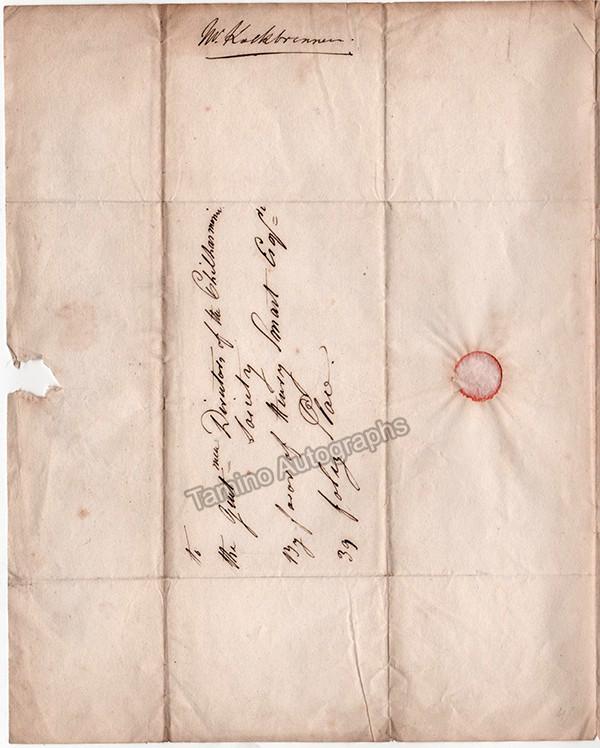 Mr. Kalkbrenner.
To
the Gentmen Directors of the Philharmonic
Society
By favor of Henry Smart Esqr=
39 Foley Place.
Tamino Autographs